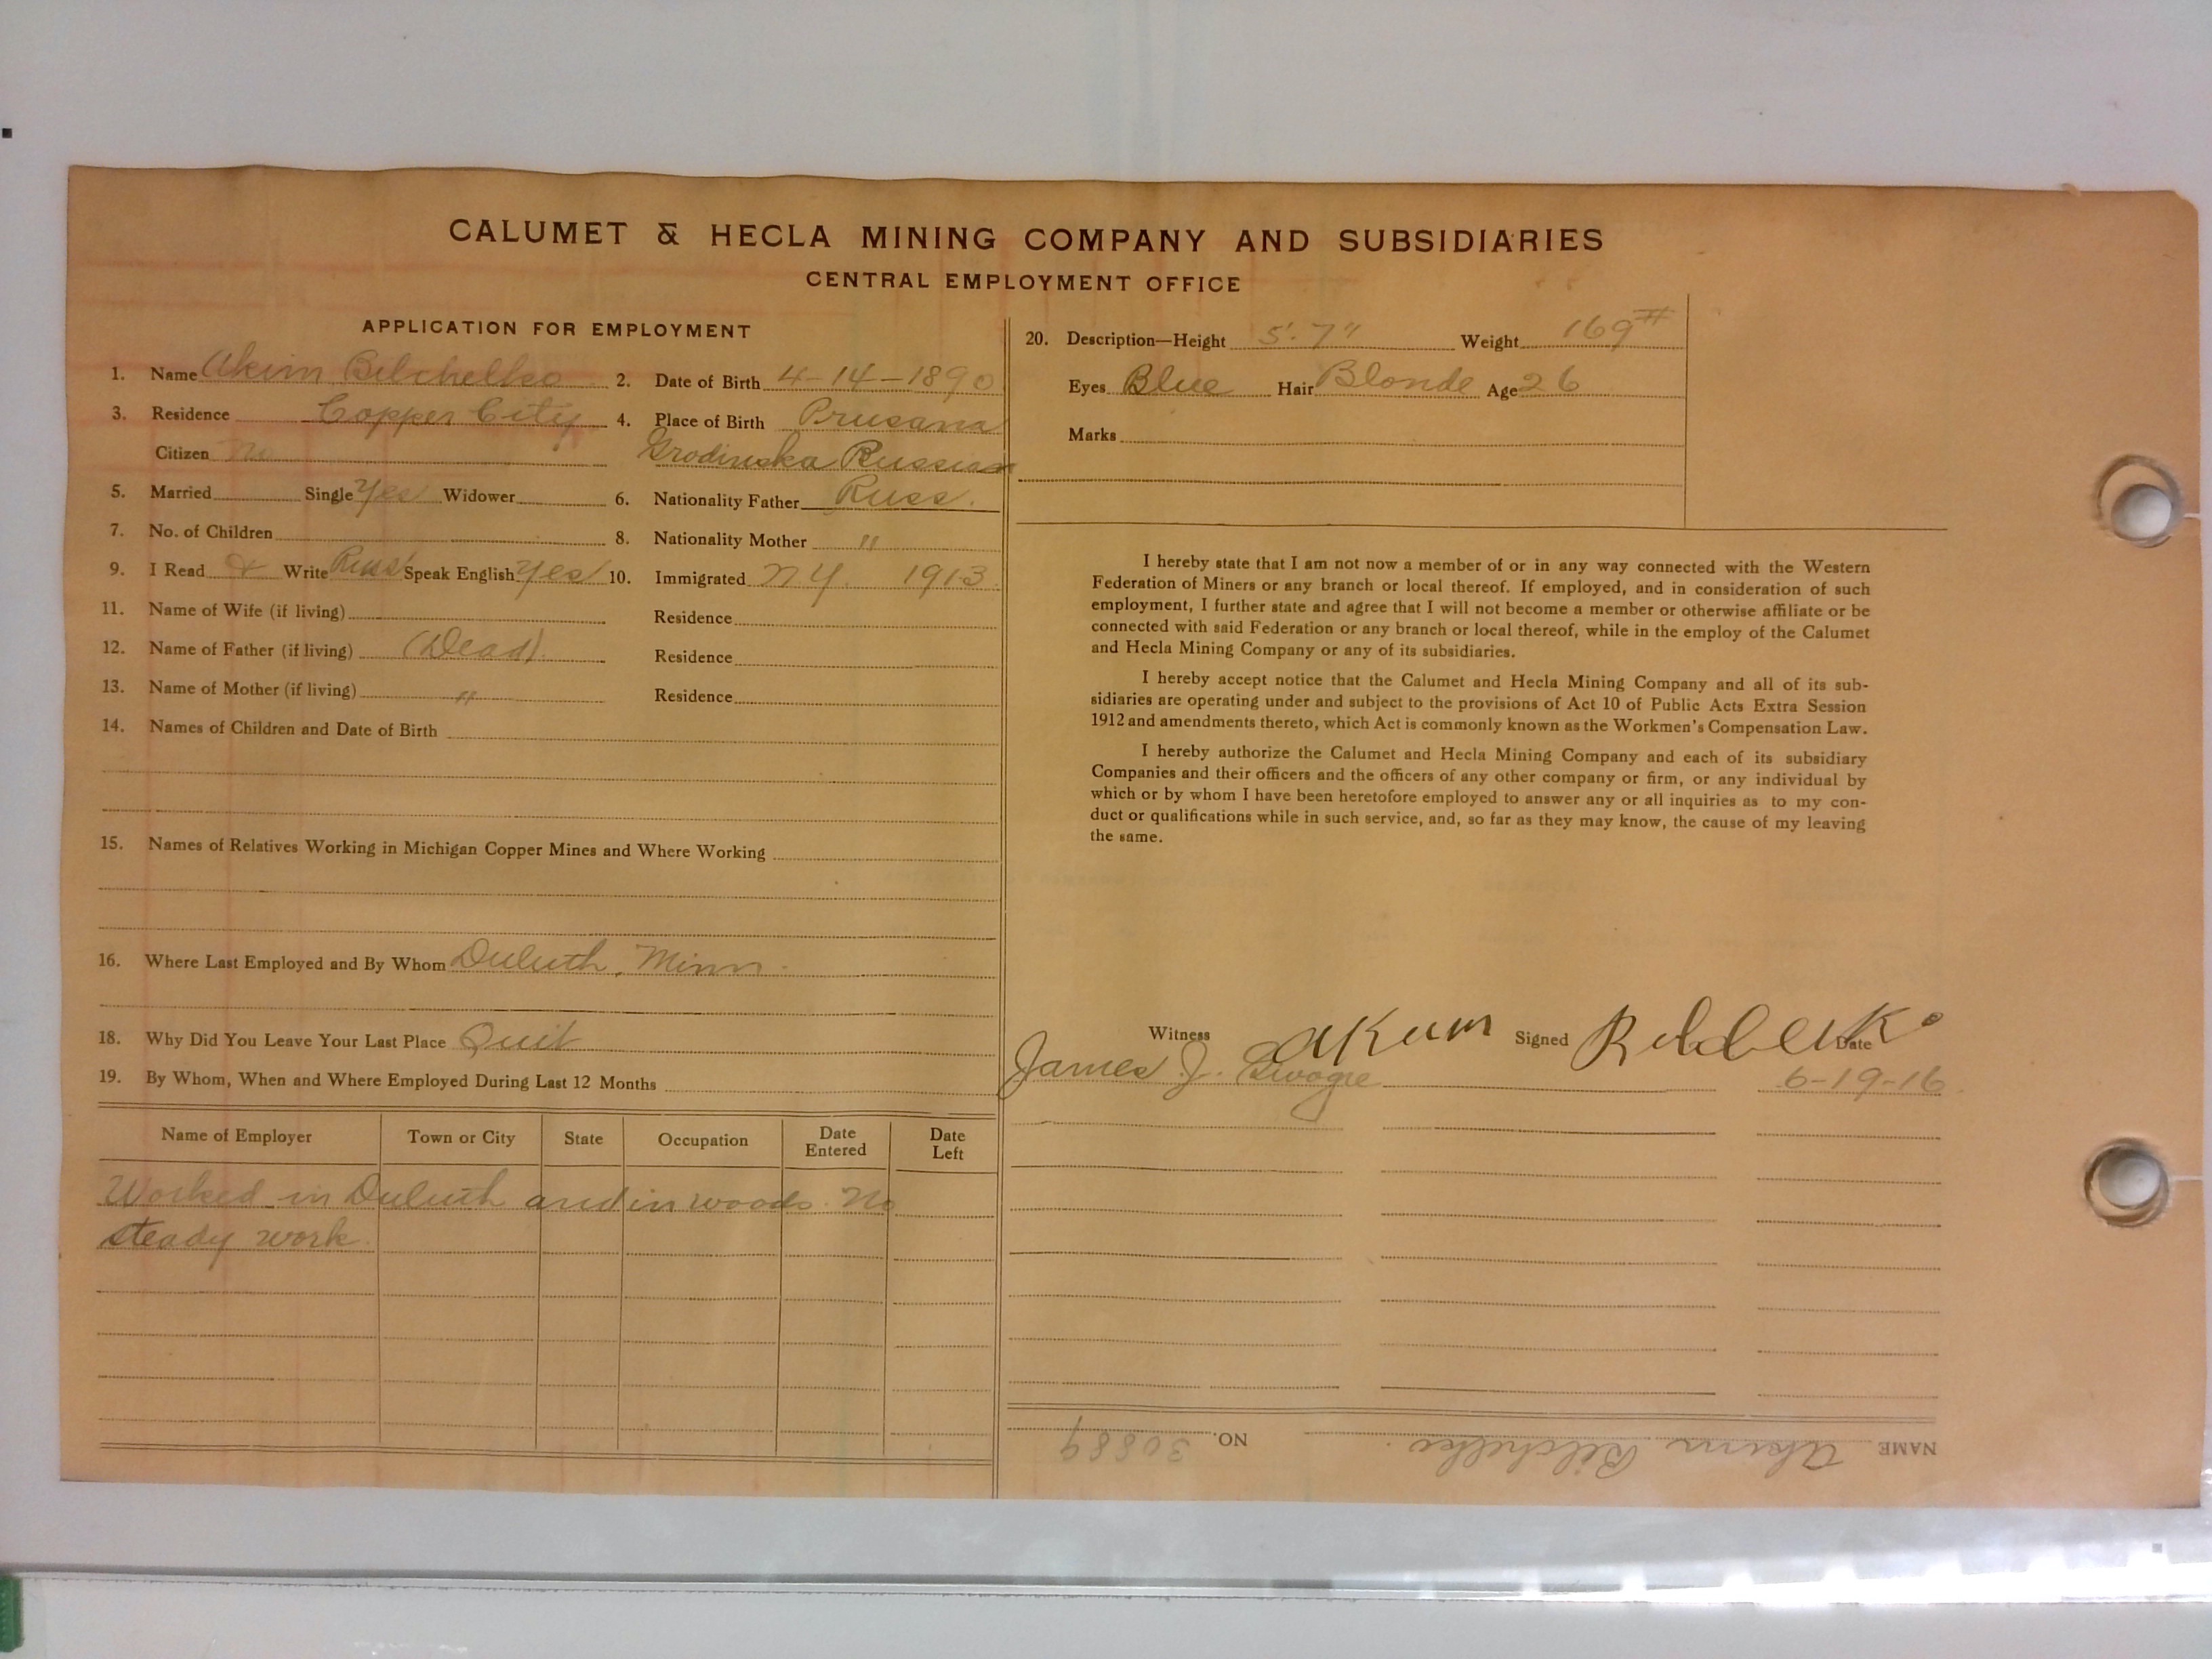 CALUMET & HECLA MINING COMPANY AND SUBSIDIARIES
CENTRAL EMPLOYMENT OFFICE
APPLICATION FOR EMPLOYMENT
1. Name Akim Bilchelko 2. Date of Birth 4-14-1890
3. Residence Copper City 4. Place of Birth Prusana
Citizen No Grodinska Russian
5. Married Single Yes Widower 6. Nationality Father Russ.
7. No. of Children 8. Nationality Mother "
9. I Read & Write Russ Speak English Yes 10. Immigrated N Y. 1913.
11. Name of Wife (if living) Residence
12. Name of Father (if living) (Dead). Residence
13. Name of Mother (if living) " Residence
14. Names of Children and Date of Birth
15. Names of Relatives Working in Michigan Copper Mines and Where Working
16. Where Last Employed and By Whom Duluth, Minn.
18. Why Did You Leave Your Last Place Quit
19. By Whom, When and Where Employed During Last 12 Months
Name of Employer Town or City State Occupation Date Entered Date Left
Worked in Duluth and in woods. No
steady work.
20. Description—Height 5'. 7" Weight 169#
Eyes Blue Hair Blonde Age 26
Marks
I hereby state that I am not now a member of or in any way connected with the Western
Federation of Miners or any branch or local thereof. If employed, and in consideration of such
employment, I further state and agree that I will not become a member or otherwise affiliate or be
connected with said Federation or any branch or local thereof, while in the employ of the Calumet
and Hecla Mining Company or any of its subsidiaries.
I hereby accept notice that the Calumet and Hecla Mining Company and all of its sub-
sidiaries are operating under and subject to the provisions of Act 10 of Public Acts Extra Session
1912 and amendments thereto, which Act is commonly known as the Workmen's Compensation Law.
I hereby authorize the Calumet and Hecla Mining Company and each of its subsidiary
Companies and their officers and the officers of any other company or firm, or any individual by
which or by whom I have been heretofore employed to answer any or all inquiries as to my con-
duct or qualifications while in such service, and, so far as they may know, the cause of my leaving
the same.
Witness Akum Signed Date
James J. 6-19-16
NAME Akim Bilchelko. NO. 30889